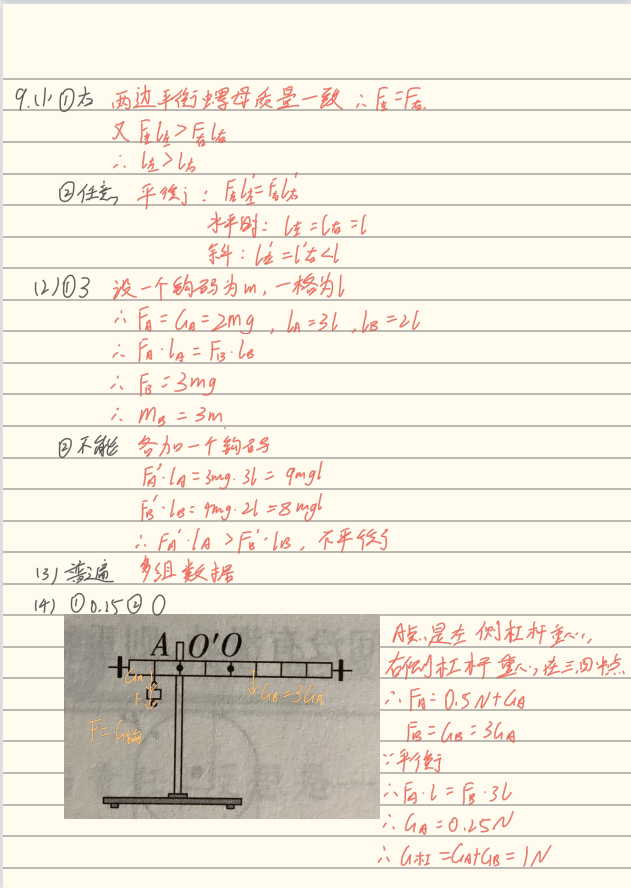 9.(1)①右 两边平衡螺母质量一致 ∴F左=F右.
又 F左l左>F右l右
∴ l左>l右
②任意 平衡j: F左l左'=F右l右'
水平时: l左=l右=l
斜: l左'=l'右<l
(2)①3 设一个钩码为m,一格为l
∴ FA=GA=2mg, lA=3l, lB=2l
∴ FA·lA=FB·lB
∴ FB=3mg
∴ mB=3m
②不能 各加一个钩码
FA'·lA=3mg·3l=9mgl
FB'·lB=4mg·2l=8mgl
∴ FA'·lA>FB'·lB, 不平衡
(3) 普遍 多组数据
(4) ①0.15②0
A O'O
GA
F
GB=3GA
F=G钩
A点是左侧杠杆重心,
右侧杠杆重心在三四中点
∴FA=0.5N+GA
FB=GB=3GA
∵平衡
∴FA·l=FB·3l
∴GA=0.25N
∴G杠=GA+GB=1N